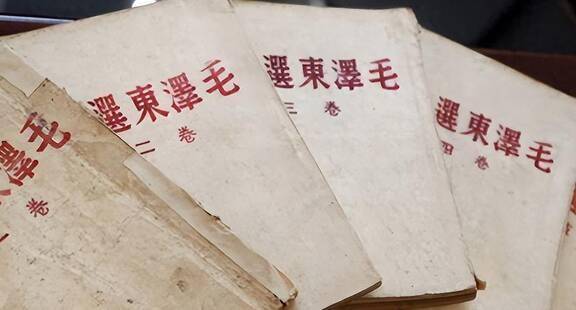 毛澤東
卷一
毛澤東選
卷二
毛澤東選
卷三
毛澤東選
卷四